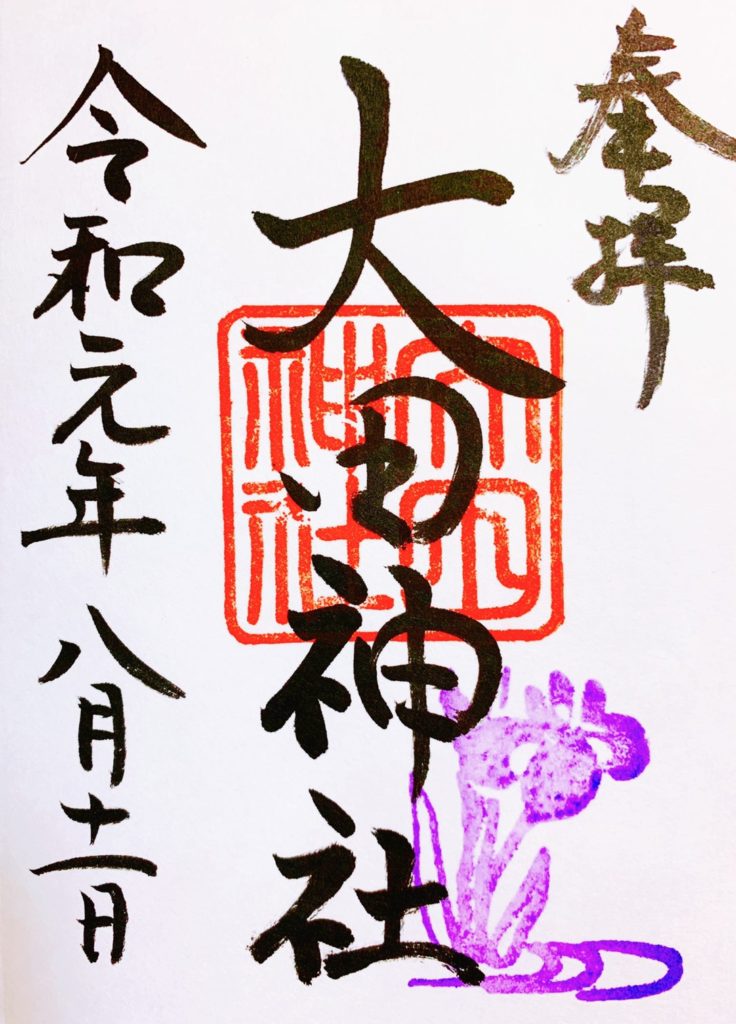 奉拝
大田神社
大田神社
令和元年八月十一日